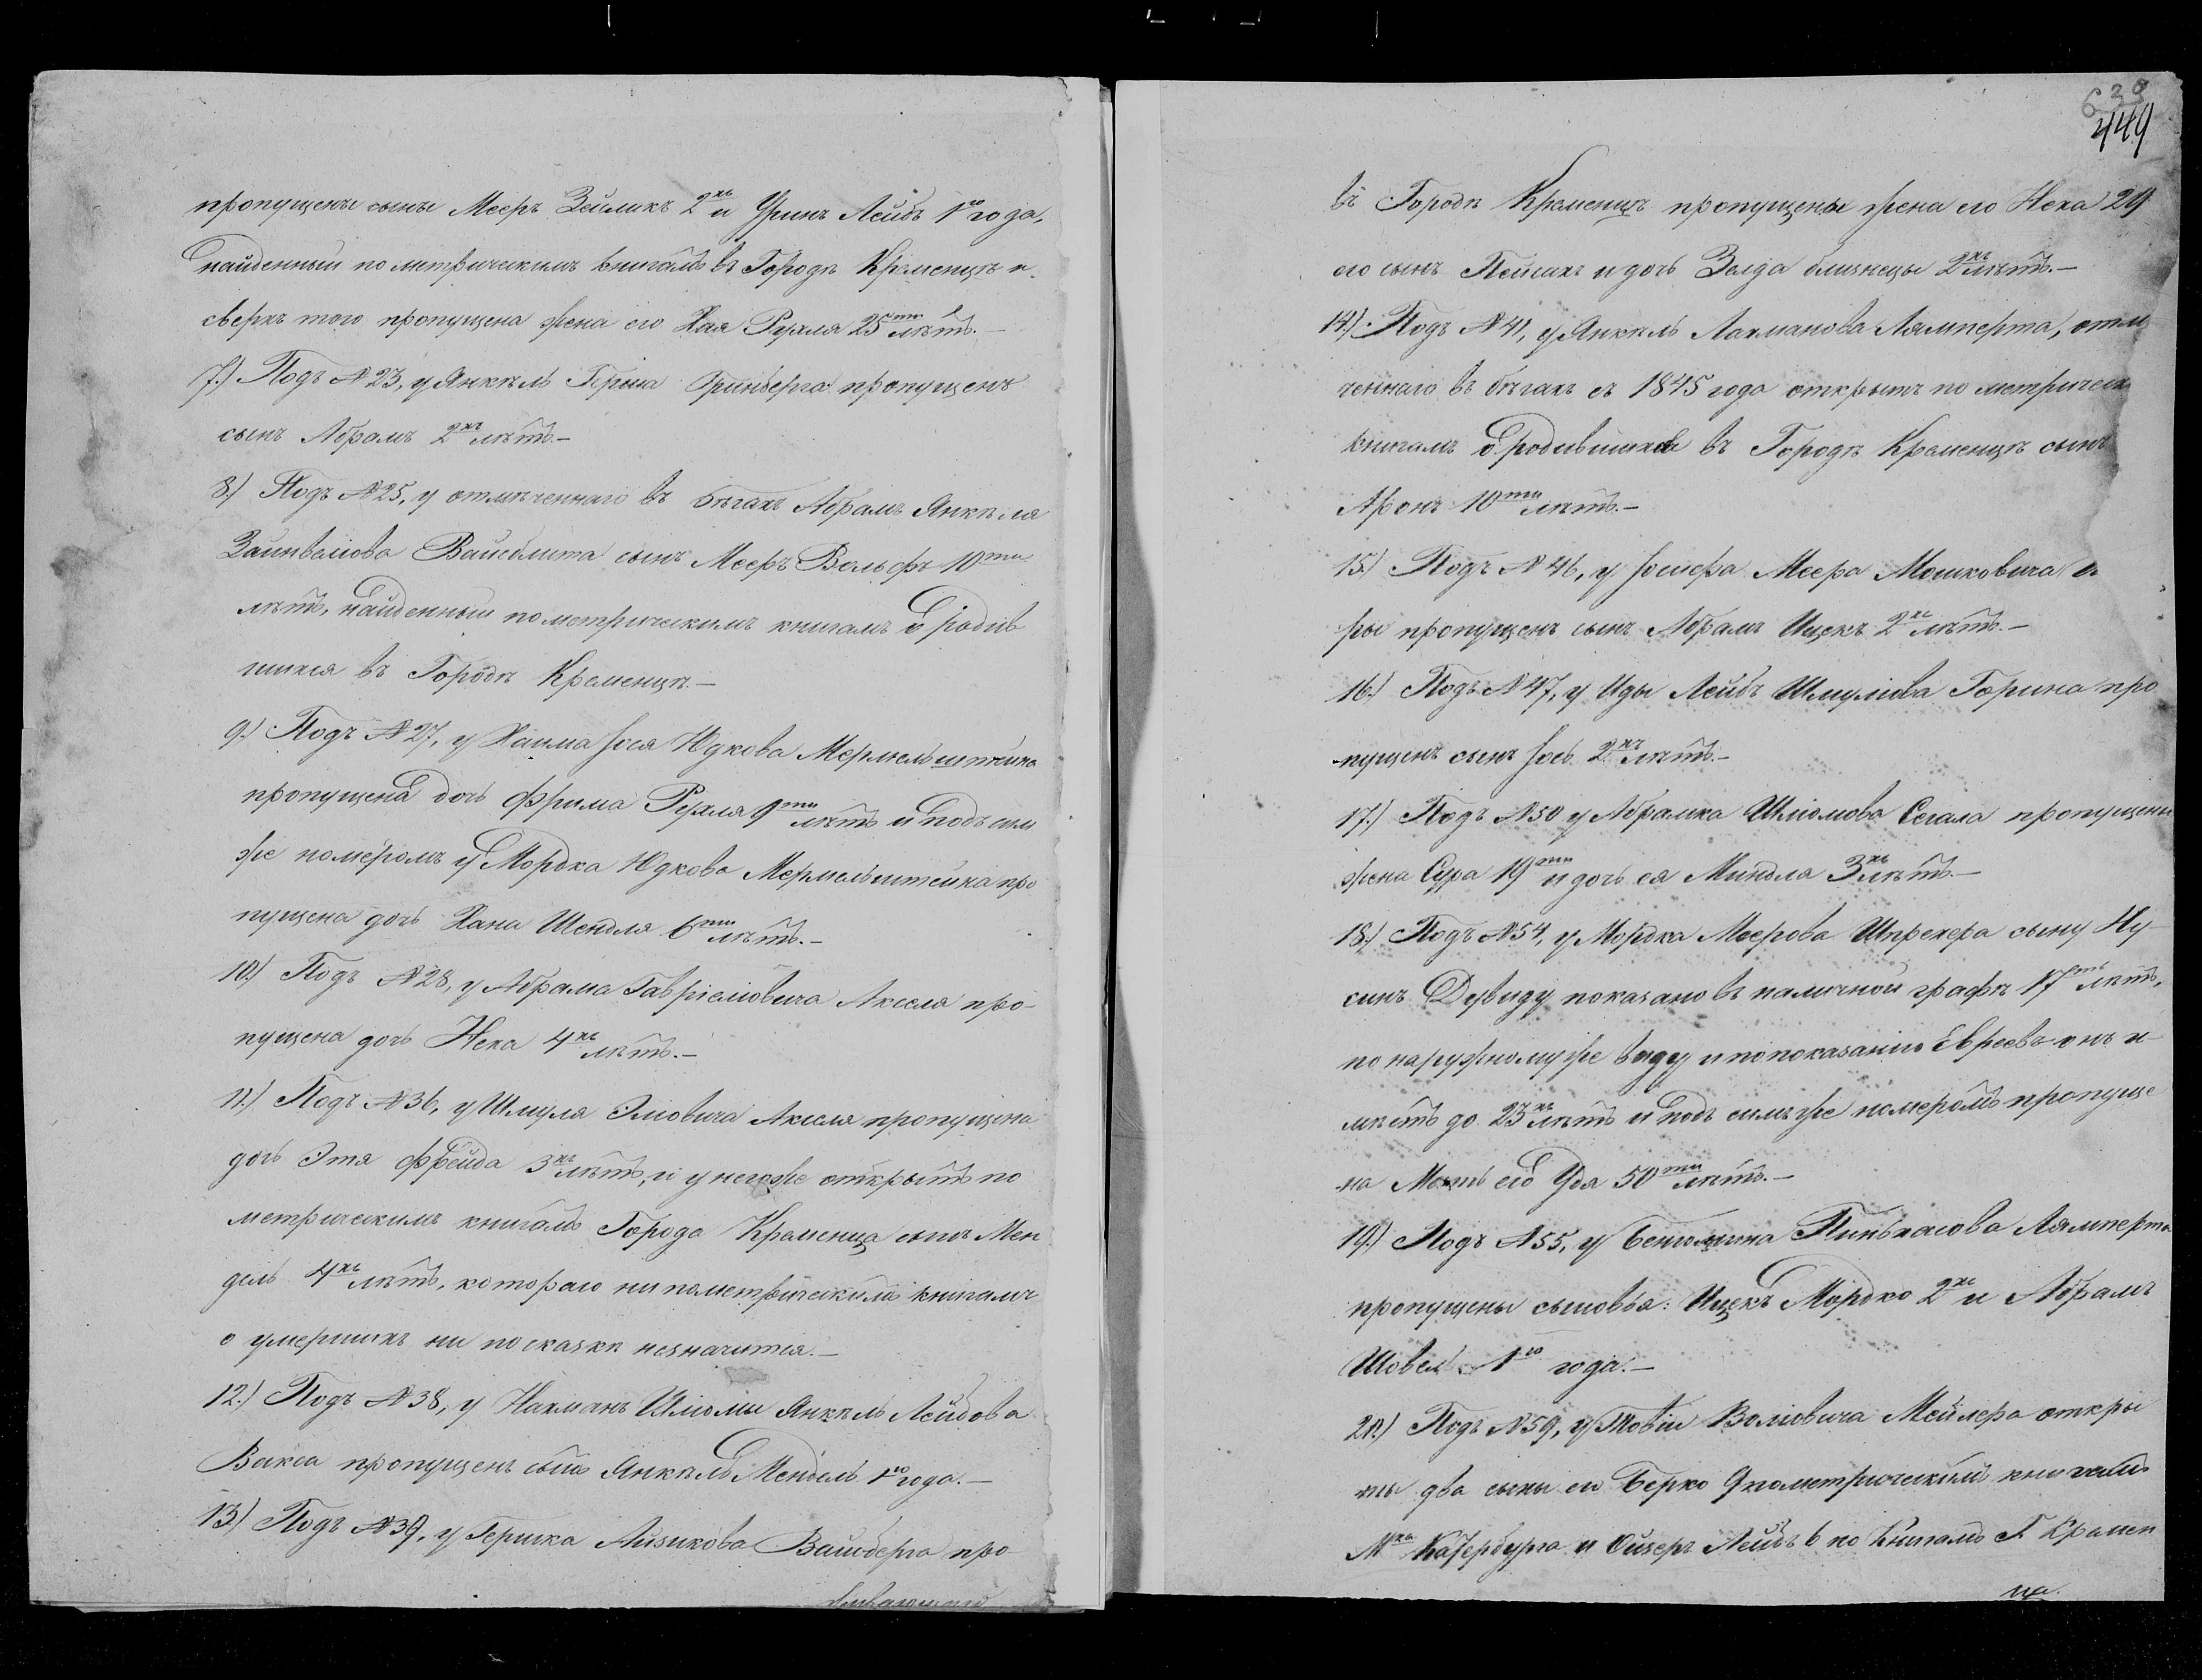 пропущены сыны Мееръ Зейликъ 2хъ и Уринъ Лейбъ 1го года,
найденный по метрическимъ книгамъ въ Городѣ Кременцѣ и
сверхъ того пропущена жена его Хая Рухля 25ти лѣтъ.—
7.) Подъ №23, у Янкель Герша Гринберга пропущенъ
сынъ Абрамъ 2хъ лѣтъ.—
8.) Подъ №25, у отмѣченнаго въ бѣгахъ Абрамъ Янкеля
Зайнвелiова Вайсблита сынъ Мееръ Вольфъ 10ти
лѣтъ, найденный по метрическимъ книгамъ о родив
шихся въ Городѣ Кременцѣ.—
9.) Подъ №27, у Хаима Іося Юдкова Мермельштейна
пропущена дочь Фрима Рухля 9ти лѣтъ и подъ симъ
же номеромъ у Мордка Юдкова Мермельштейна про
пущена дочь Хана Шендля 6ти лѣтъ.—
10.) Подъ №28, у Абрама Гаврiеловича Акселя про-
пущена дочь Неха 4хъ лѣтъ.—
11.) Подъ №36, у Шмуля Элiовича Акселя пропущена
дочь Этя Фрейда 3хъ лѣтъ, и у него же открытъ по
метрическимъ книгамъ Города Кременца сынъ Мен
дель 4хъ лѣтъ, котораго ни по метрическимъ книгамъ
о умершихъ ни по сказкѣ незначится.—
12.) Подъ №38, у Нахманъ Шлiомы Янкель Лейбова
Вакса пропущенъ сынъ Янкель Мендель 1го года.—
13.) Подъ №39, у Гершка Айзикова Вайсберга про
живающаго
629
449
въ Городѣ Кременцѣ пропущены жена его Неха 29
его сынъ Пейсахъ и дочь Зелда близнецы 2хъ лѣтъ.—
14.) Подъ №41, у Янкель Нахманова Лямперта, отмѣ
ченнаго въ бѣгахъ съ 1845 года открытъ по метрическ
книгамъ о родившихся въ Городѣ Кременцѣ сынъ
Аронъ 10ти лѣтъ.—
15.) Подъ №46, у Іосифа Меера Мошковича
ры пропущенъ сынъ Абрамъ Ицекъ 2хъ лѣтъ.—
16.) Подъ №47, у Иды Лейбъ Шмулiова Горина про
пущенъ сынъ Іось 2хъ лѣтъ.—
17.) Подъ №50 у Абрамка Шлiомова Сегала пропущены
жена Сура 19ти и дочь ея Миндля 3хъ лѣтъ.—
18.) Подъ №54, у Мордка Меерова Шпрехера сыну Ну
синъ Дувиду показано въ наличной графѣ 17ть лѣтъ,
по наружному же виду и по показанiю Евреевъ онъ и-
мѣетъ до 23хъ лѣтъ и подъ симъ же номеромъ пропуще
на Мать его Удя 50ти лѣтъ.—
19.) Подъ №55, у Бенiомина Пинькасова Лямперта
пропущены сыновья: Ицекъ Мордко 2хъ и Абрамъ
Шовель 1го года.—
20.) Подъ №59, у Товiи Волiовича Мейлера откры
ты два сыны его Берко 9 по метрическимъ книгамъ
Мка Катербурга и Ойзеръ Лейбъ 6 по Книгамъ Г. Кремен
ца.